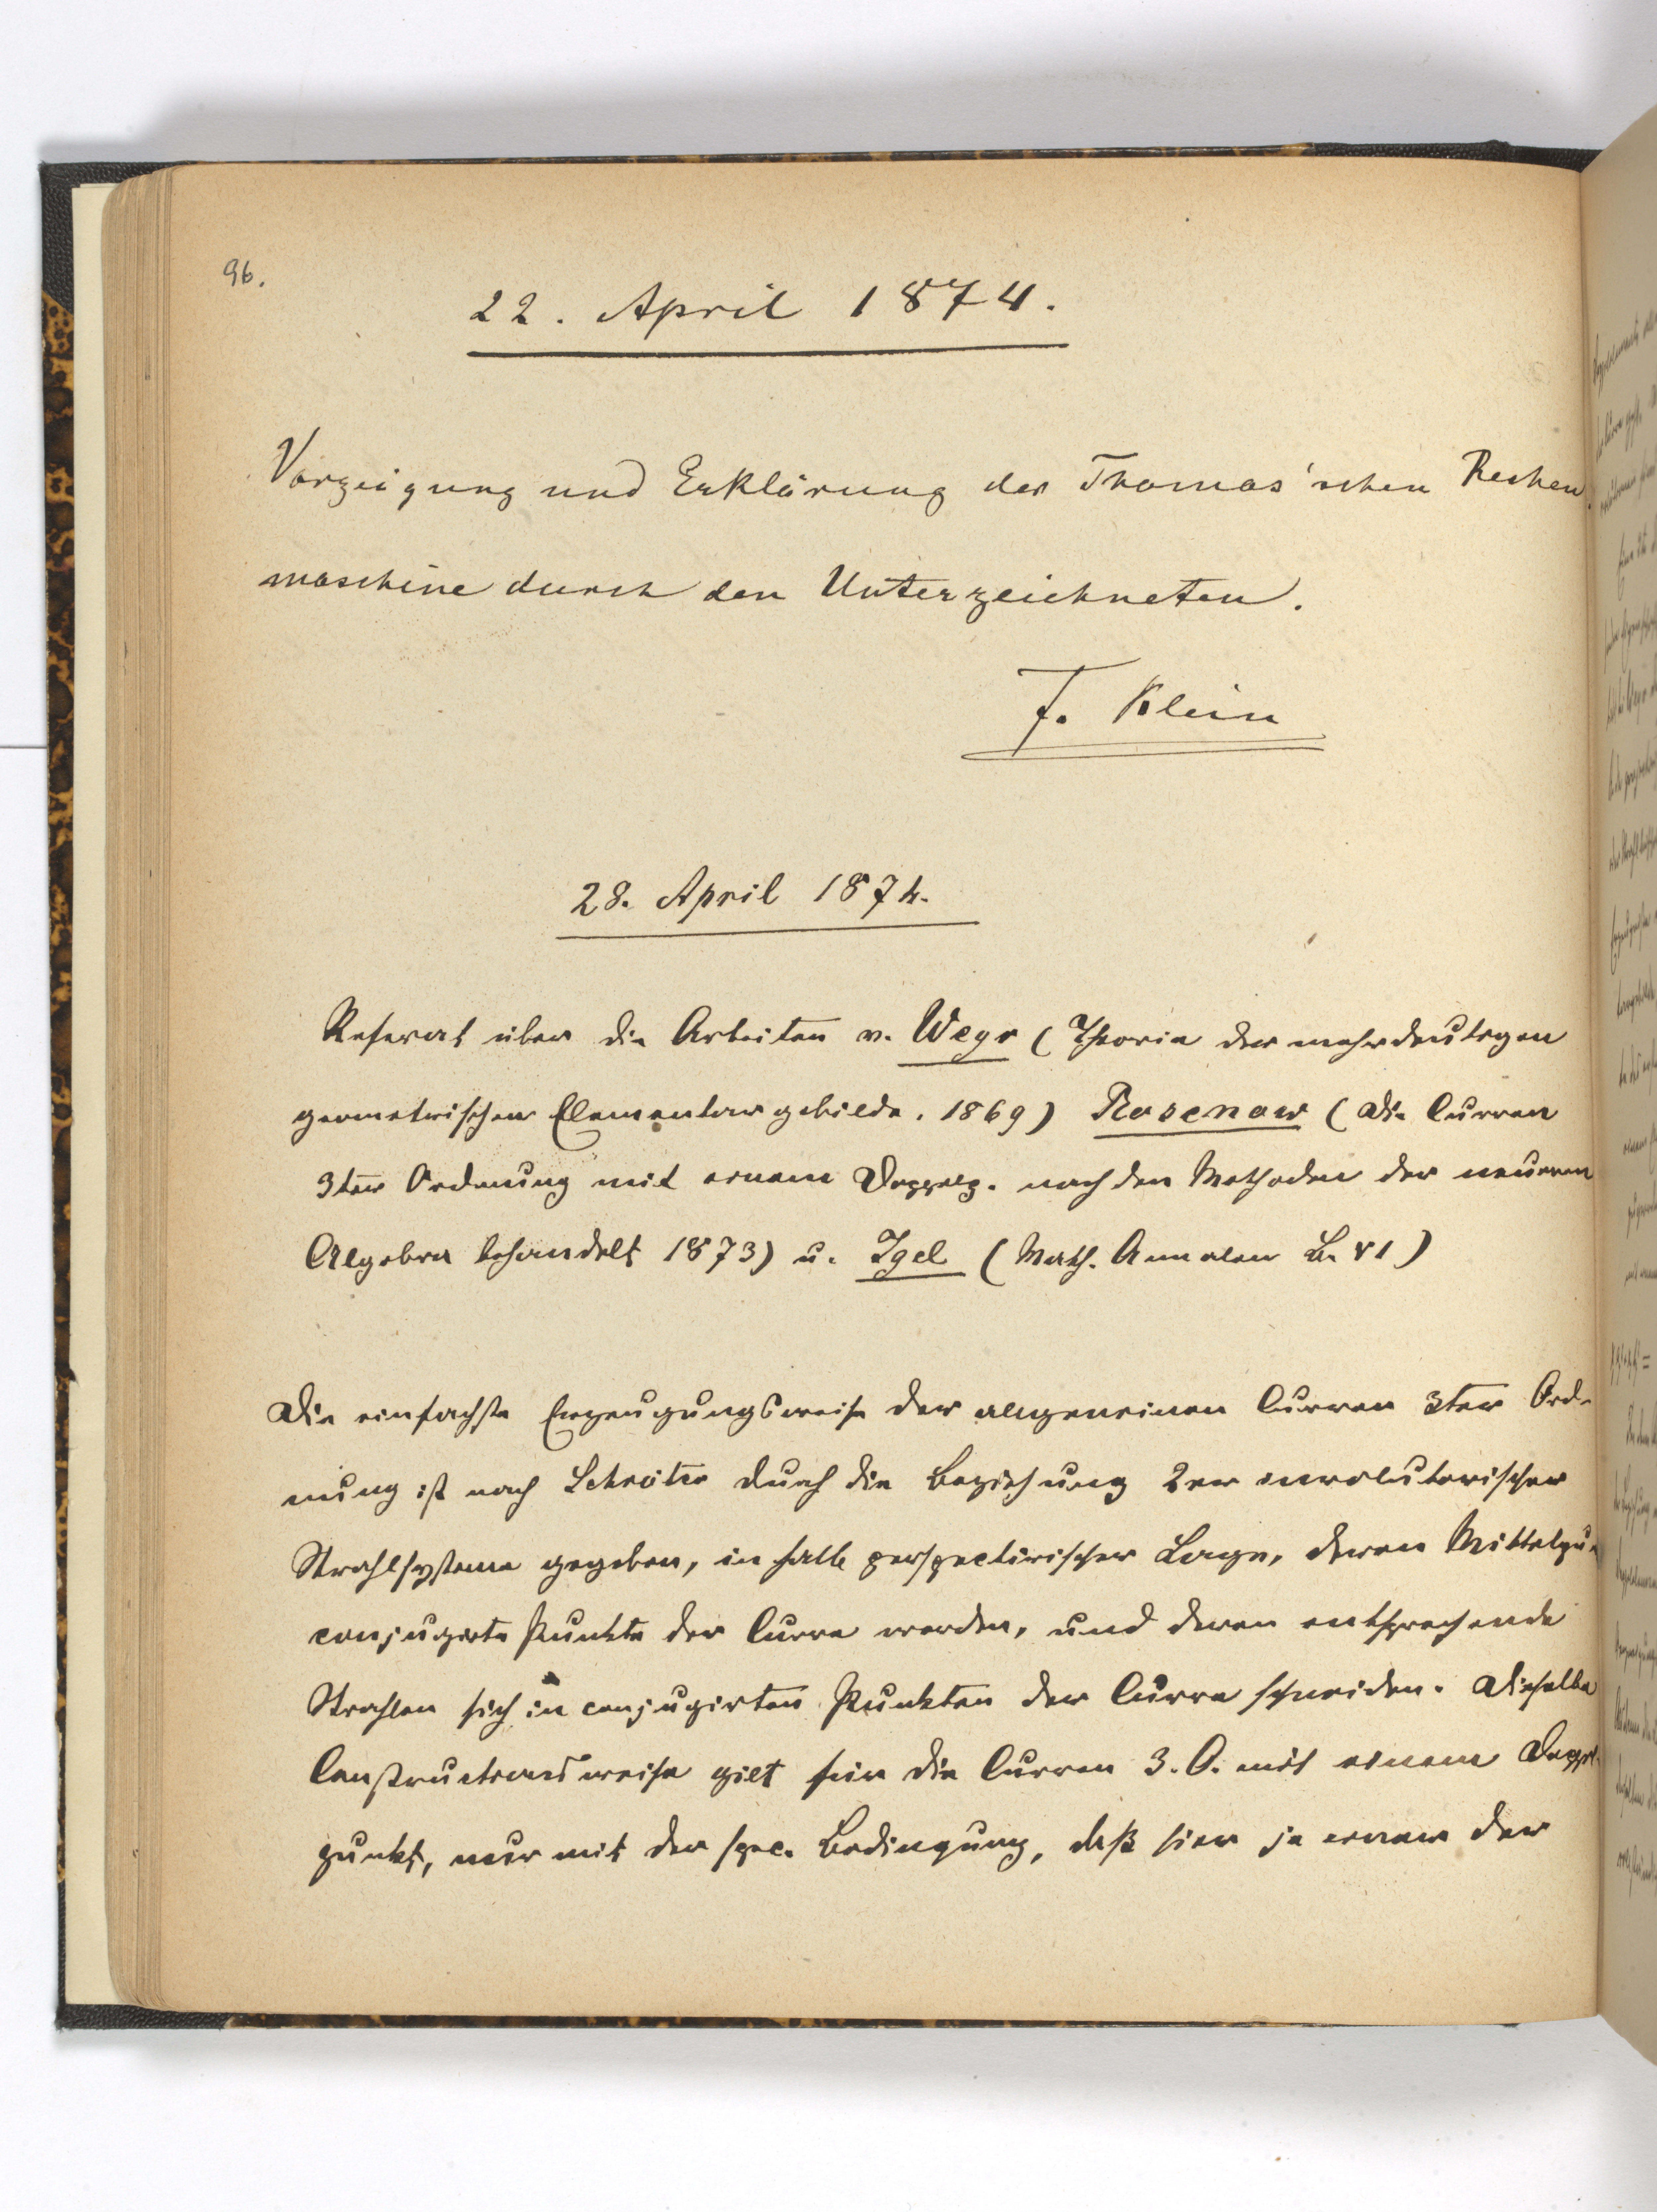 96.
22. April 1874.
Vorzeigung und Erklärung der Thomas'schen Rechen
maschine durch den Unterzeichneten.
F. Klein
28. April 1874.
Referat über die Arbeiten v. Weyr (Theorie der mehrdeutigen
geometrischen Elementargebilde. 1869) Rosenow (Die Curven
3ter Ordnung mit einem Doppelp. nach den Methoden der neueren
Algebra behandelt 1873) u. Igel (Math. Annalen B. VI)
Die einfachste Erzeugungsweise der allgemeinen Curven 3ter Ord-
nung ist nach Schröter durch die Beziehung 2er involutorischer
Strahlsysteme gegeben, in halb perspectivischer Lage, deren Mittelpun
conjugirte Punkte der Curve werden, und deren entsprechende
Strahlen sich in conjugirten Punkten der Curve schneiden. Dieselbe
Constructionsweise gilt für die Curven 3. O. mit einem Doppel-
punkt, nur mit der spec. Bedingung, daß hier je einer der